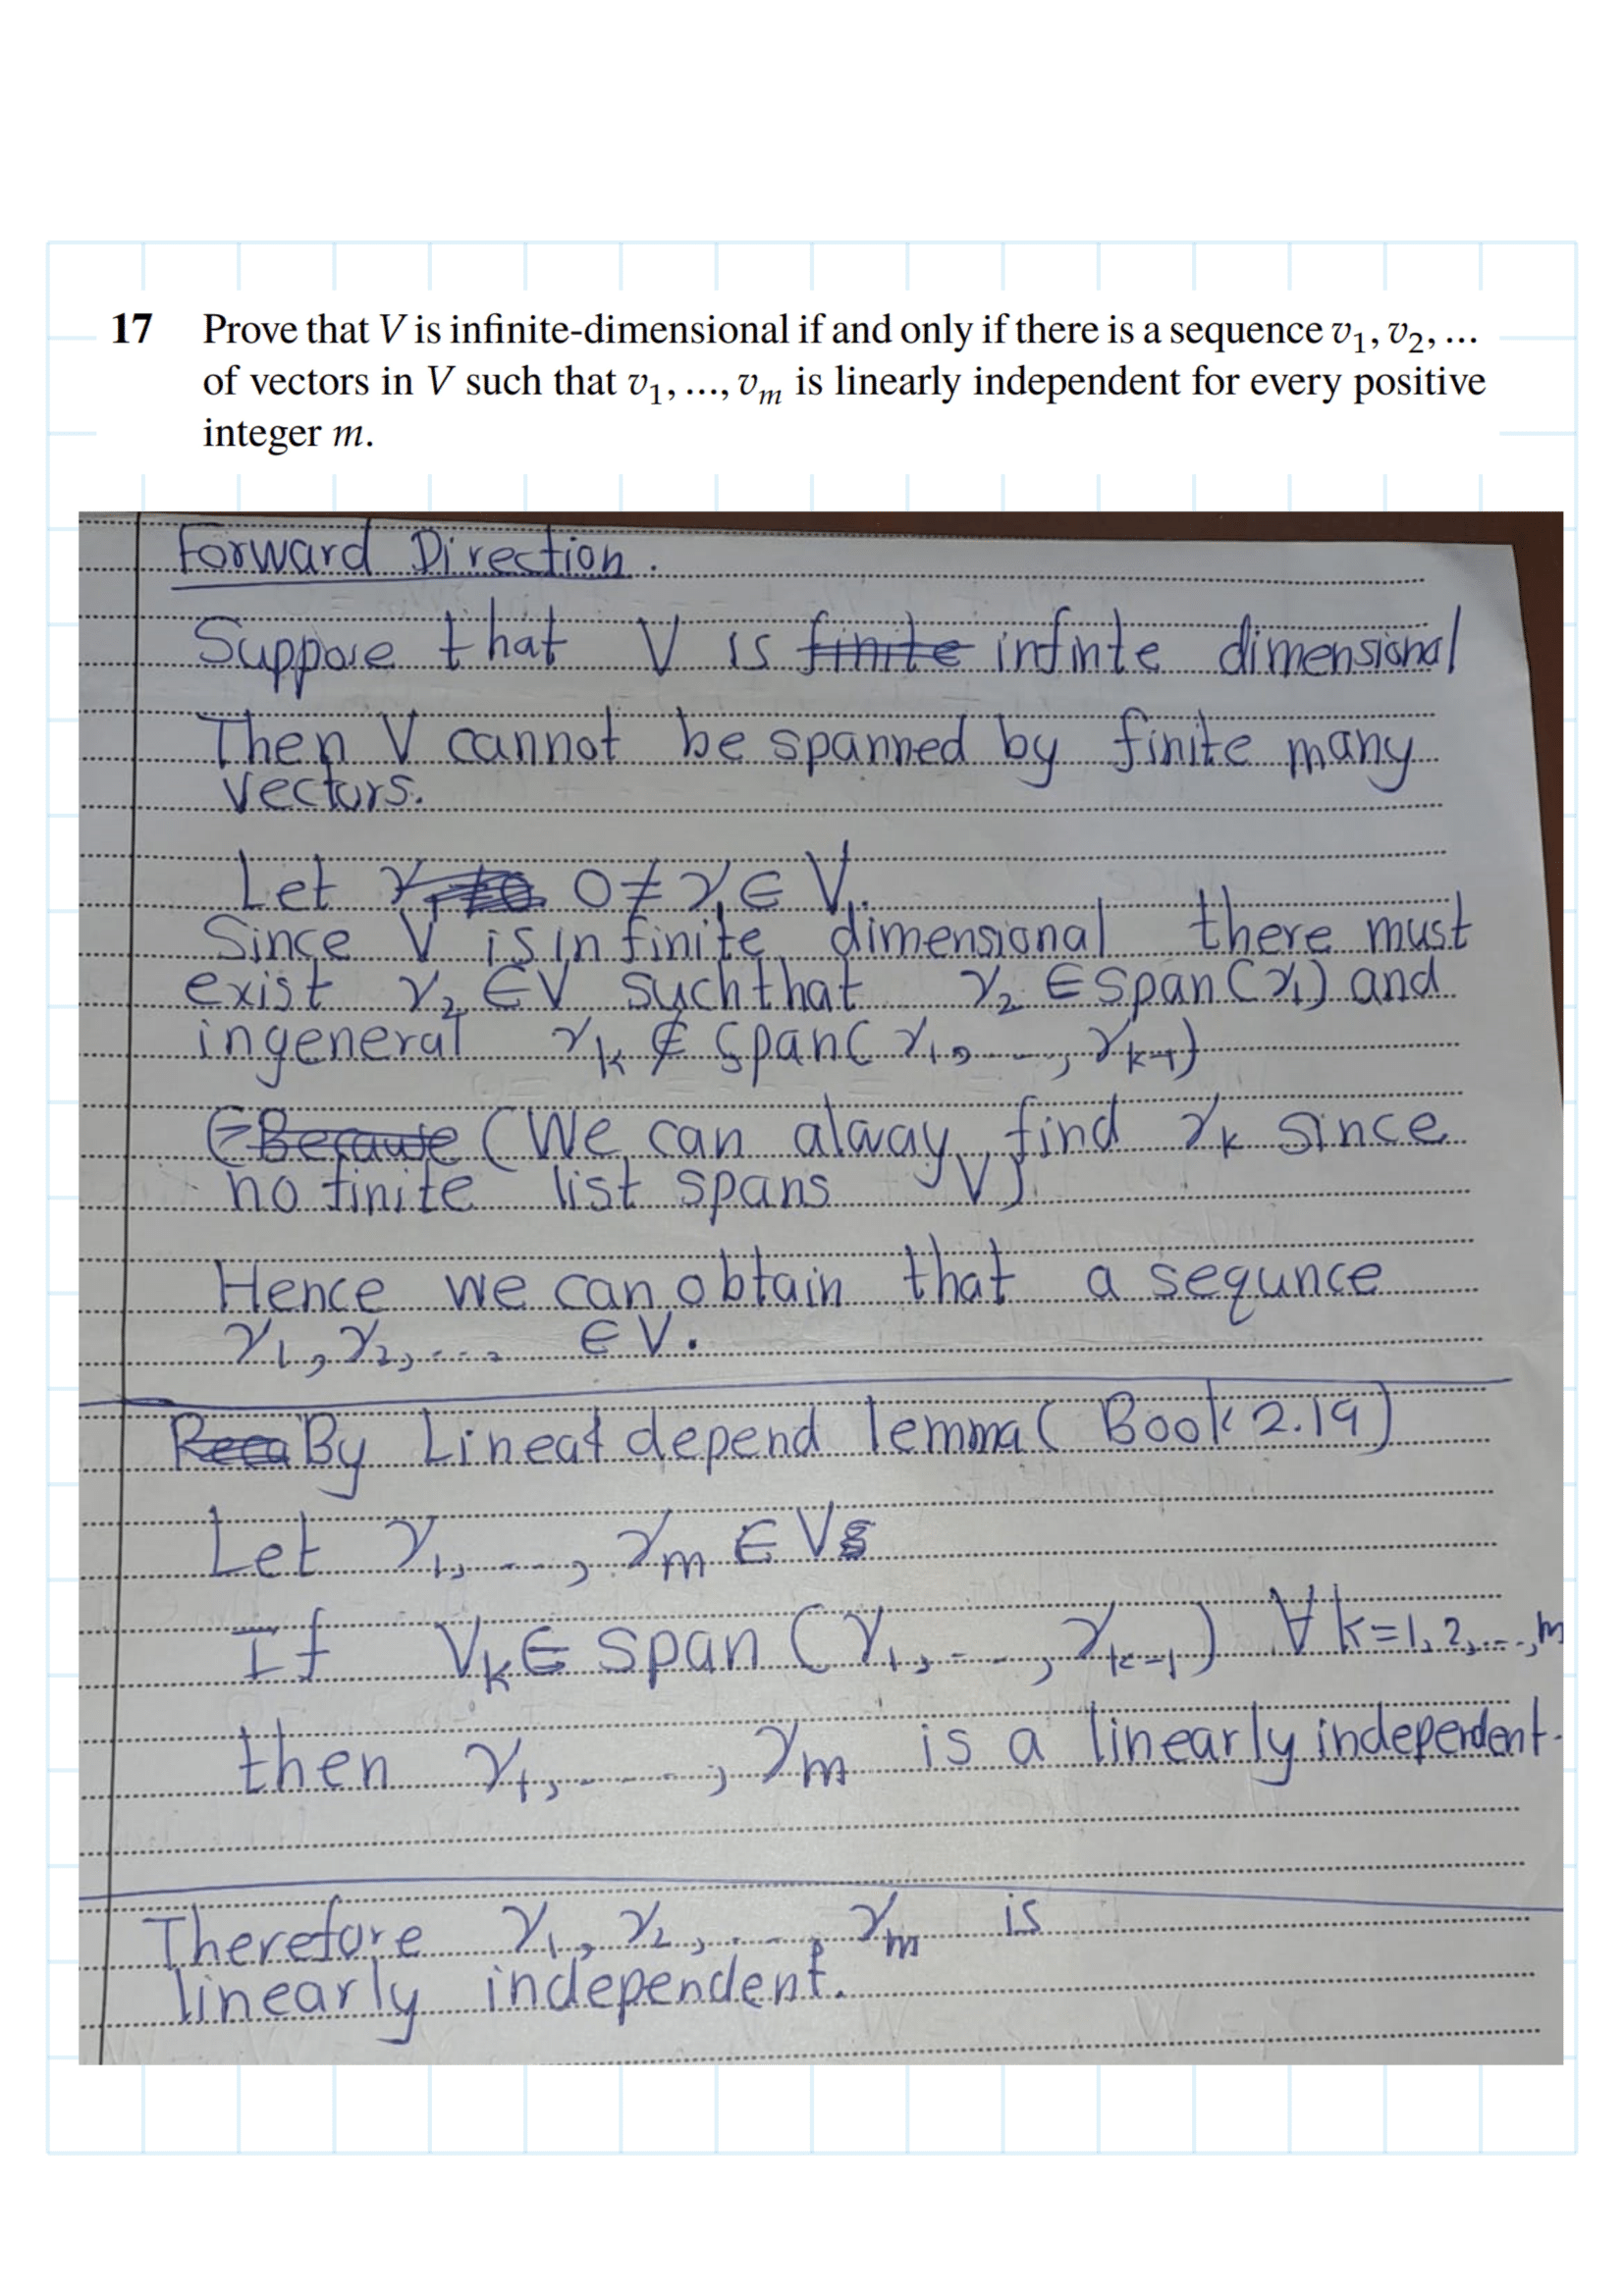 17 Prove that V is infinite-dimensional if and only if there is a sequence v₁, v₂, ...
of vectors in V such that v₁, ..., vₘ is linearly independent for every positive
integer m.
Forward Direction.
Suppose that V is ~~finite~~ infinite dimensional
Then V cannot be spanned by finite many
vectors.
Let 0 ≠ v₁ ∈ V.
Since V is infinite dimensional there must
exist v₂ ∈ V such that v₂ ∈ span(v₁) and
ingeneral vₖ ∉ span(v₁, ..., vₖ₋₁)
~~Because~~ (We can alway find vₖ since
no finite list spans V)
Hence we can obtain that a sequnce
v₁, v₂, .... ∈ V.
By Linear depend lemma ( Book 2.19)
Let v₁, ..., vₘ ∈ V
If Vₖ ∈ span (v₁, ..., vₖ₋₁) ∀ k=1,2,...,m
then v₁, ...., vₘ is a linearly independent.
Therefore v₁, v₂, ..., vₘ is
linearly independent.